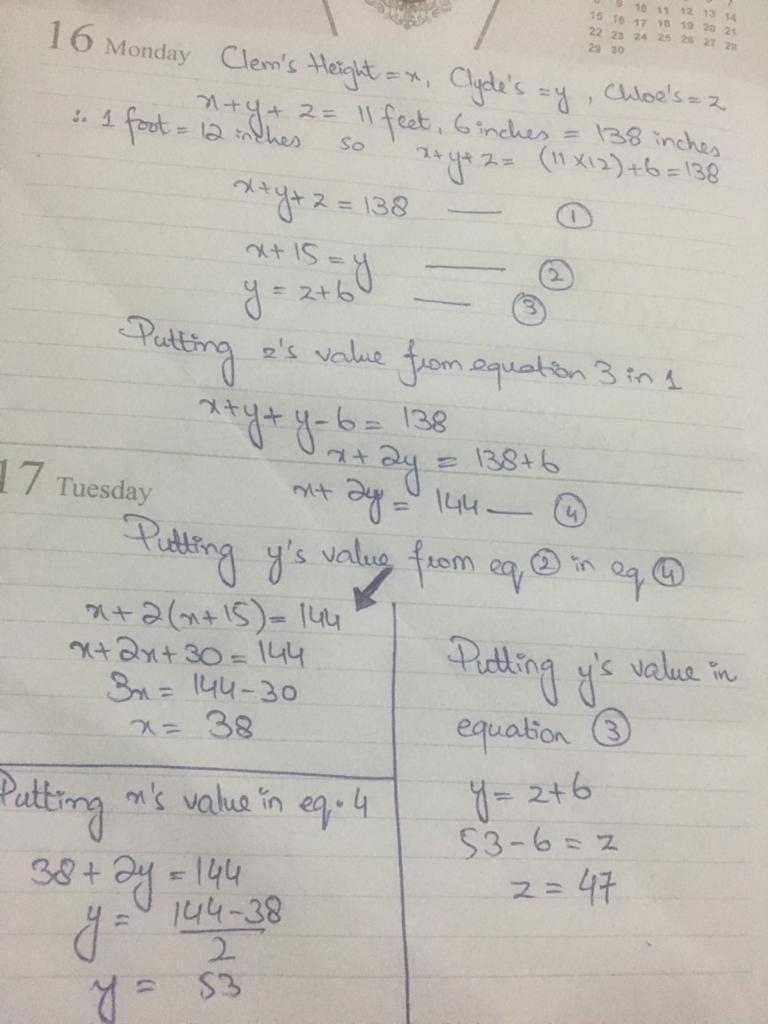 8 9 10 11 12 13 14
15 16 17 18 19 20 21
22 23 24 25 26 27 28
29 30
16 Monday
Clem's Height = x, Clyde's = y, Chloe's = z
x+y+z = 11 feet, 6 inches = 138 inches
∴ 1 foot = 12 inches so x+y+z = (11×12)+6=138
x+y+z = 138 — ①
x+15 = y — ②
y = z+6 — ③
Putting z's value from equation 3 in 1
x+y+y-6 = 138
x+2y = 138+6
17 Tuesday
x+2y = 144 — ④
Putting y's value from eq ② in eq ④
x+2(x+15)=144
x+2x+30=144
3x = 144-30
x = 38
Putting x's value in eq. 4
38+2y=144
y = 144-38
2
y = 53
Putting y's value in
equation ③
y = z+6
53-6 = z
z = 47